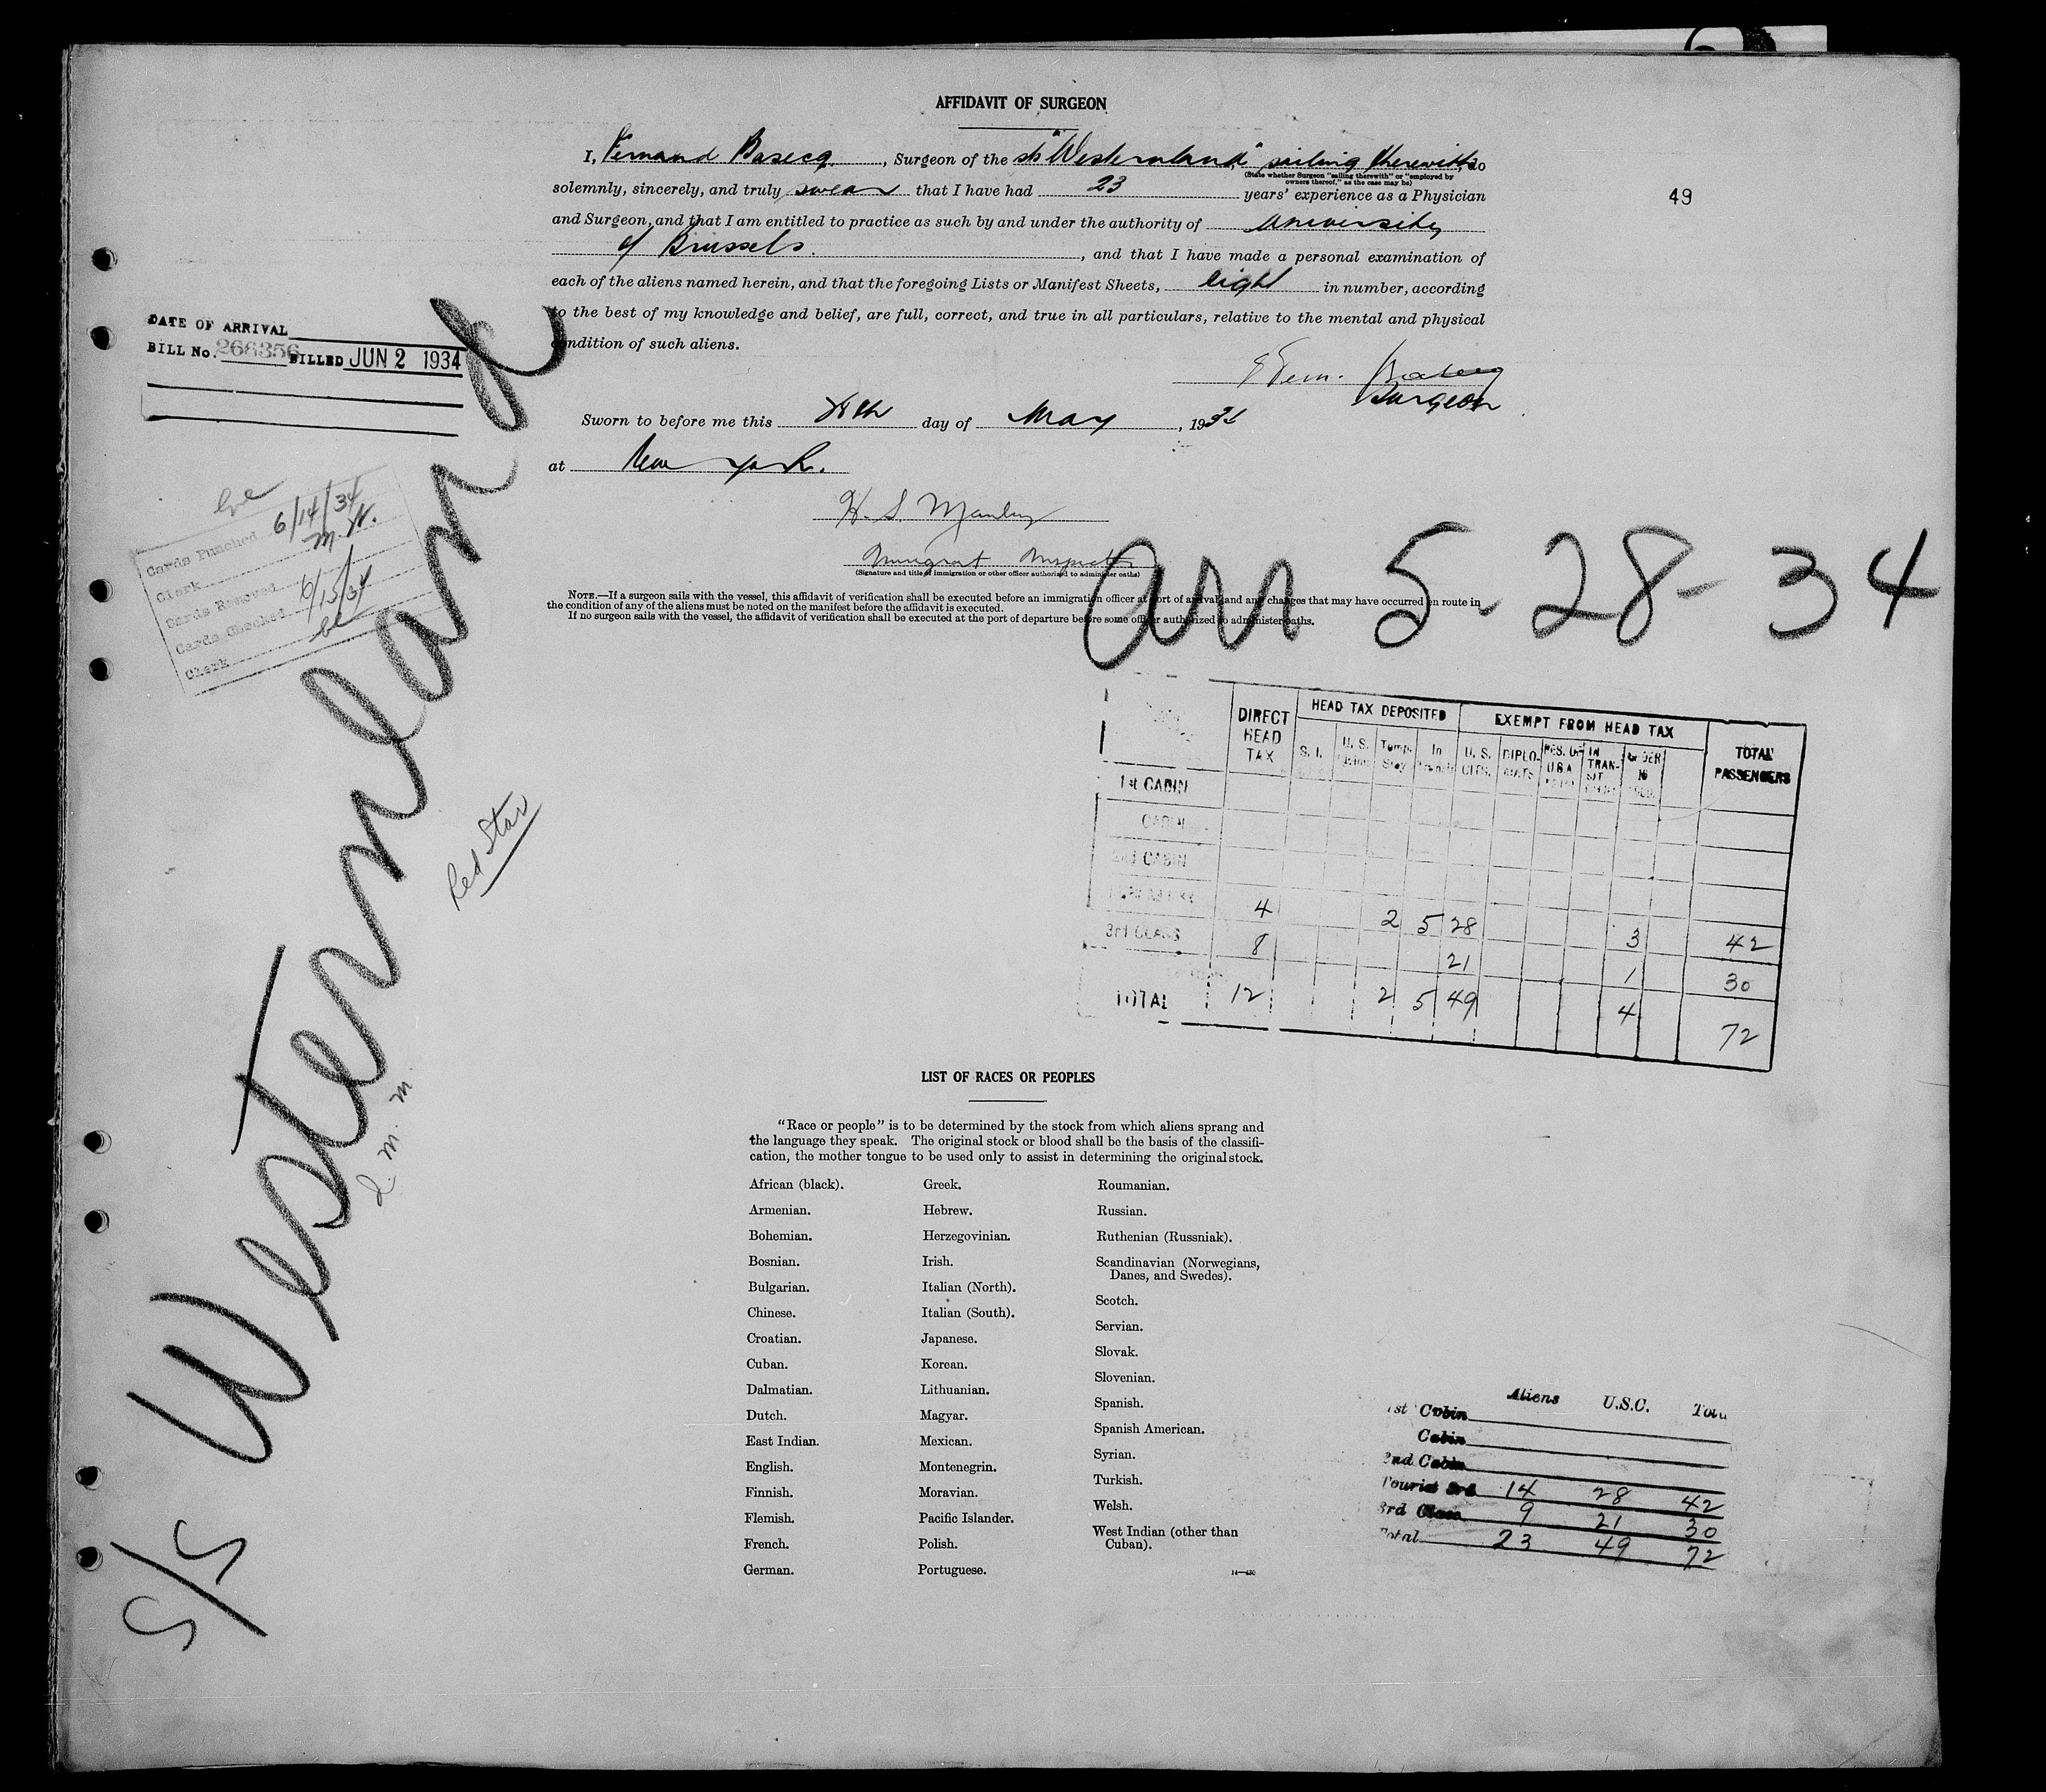 AFFIDAVIT OF SURGEON
I, Fernand Basecq, Surgeon of the ss "Westernland," sailing therewith, do
(State whether Surgeon "sailing therewith" or "employed by
owners thereof," as the case may be)
solemnly, sincerely, and truly swear that I have had 23 years' experience as a Physician
and Surgeon, and that I am entitled to practice as such by and under the authority of University
of Brussels., and that I have made a personal examination of
each of the aliens named herein, and that the foregoing Lists or Manifest Sheets, eight in number, according
to the best of my knowledge and belief, are full, correct, and true in all particulars, relative to the mental and physical
condition of such aliens.
49
Surgeon
DATE OF ARRIVAL
BILL No. 266356 BILLED JUN 2 1934
Sworn to before me this 28th day of May, 1934
at New York.
H. S. Manley
Immigrant Inspector
(Signature and title of immigration or other officer authorized to administer oaths)
NOTE.—If a surgeon sails with the vessel, this affidavit of verification shall be executed before an immigration officer at port of arrival and any changes that may have occurred en route in
the condition of any of the aliens must be noted on the manifest before the affidavit is executed.
If no surgeon sails with the vessel, the affidavit of verification shall be executed at the port of departure before some officer authorized to administer oaths.
Cards Punched 6/14/34
Clerk M. W.
Cards Removed
Cards Checked 6/15/34
Clerk
S/S Westernland
Red Star
arr 5-28-34
DIRECT HEAD TAX
HEAD TAX DEPOSITED
EXEMPT FROM HEAD TAX
TOTAL PASSENGERS
S. I. U. S. Temp. Stay In Transit U. S. CITS. DIPLOMATS RES. OF U.S.A. IN TRANSIT UNDER 16
1st CABIN
CABIN
2nd CABIN
4 2 5 28 3 42
3rd CLASS
8 21 1 30
TOTAL 12 2 5 49 4 72
LIST OF RACES OR PEOPLES
"Race or people" is to be determined by the stock from which aliens sprang and
the language they speak. The original stock or blood shall be the basis of the classifi-
cation, the mother tongue to be used only to assist in determining the original stock.
African (black).
Armenian.
Bohemian.
Bosnian.
Bulgarian.
Chinese.
Croatian.
Cuban.
Dalmatian.
Dutch.
East Indian.
English.
Finnish.
Flemish.
French.
German.
Greek.
Hebrew.
Herzegovinian.
Irish.
Italian (North).
Italian (South).
Japanese.
Korean.
Lithuanian.
Magyar.
Mexican.
Montenegrin.
Moravian.
Pacific Islander.
Polish.
Portuguese.
Roumanian.
Russian.
Ruthenian (Russniak).
Scandinavian (Norwegians,
Danes, and Swedes).
Scotch.
Servian.
Slovak.
Slovenian.
Spanish.
Spanish American.
Syrian.
Turkish.
Welsh.
West Indian (other than
Cuban).
Aliens U.S.C. Total
1st Cabin
Cabin
2nd Cabin
Tourist 3rd 14 28 42
3rd Class 9 21 30
Total 23 49 72